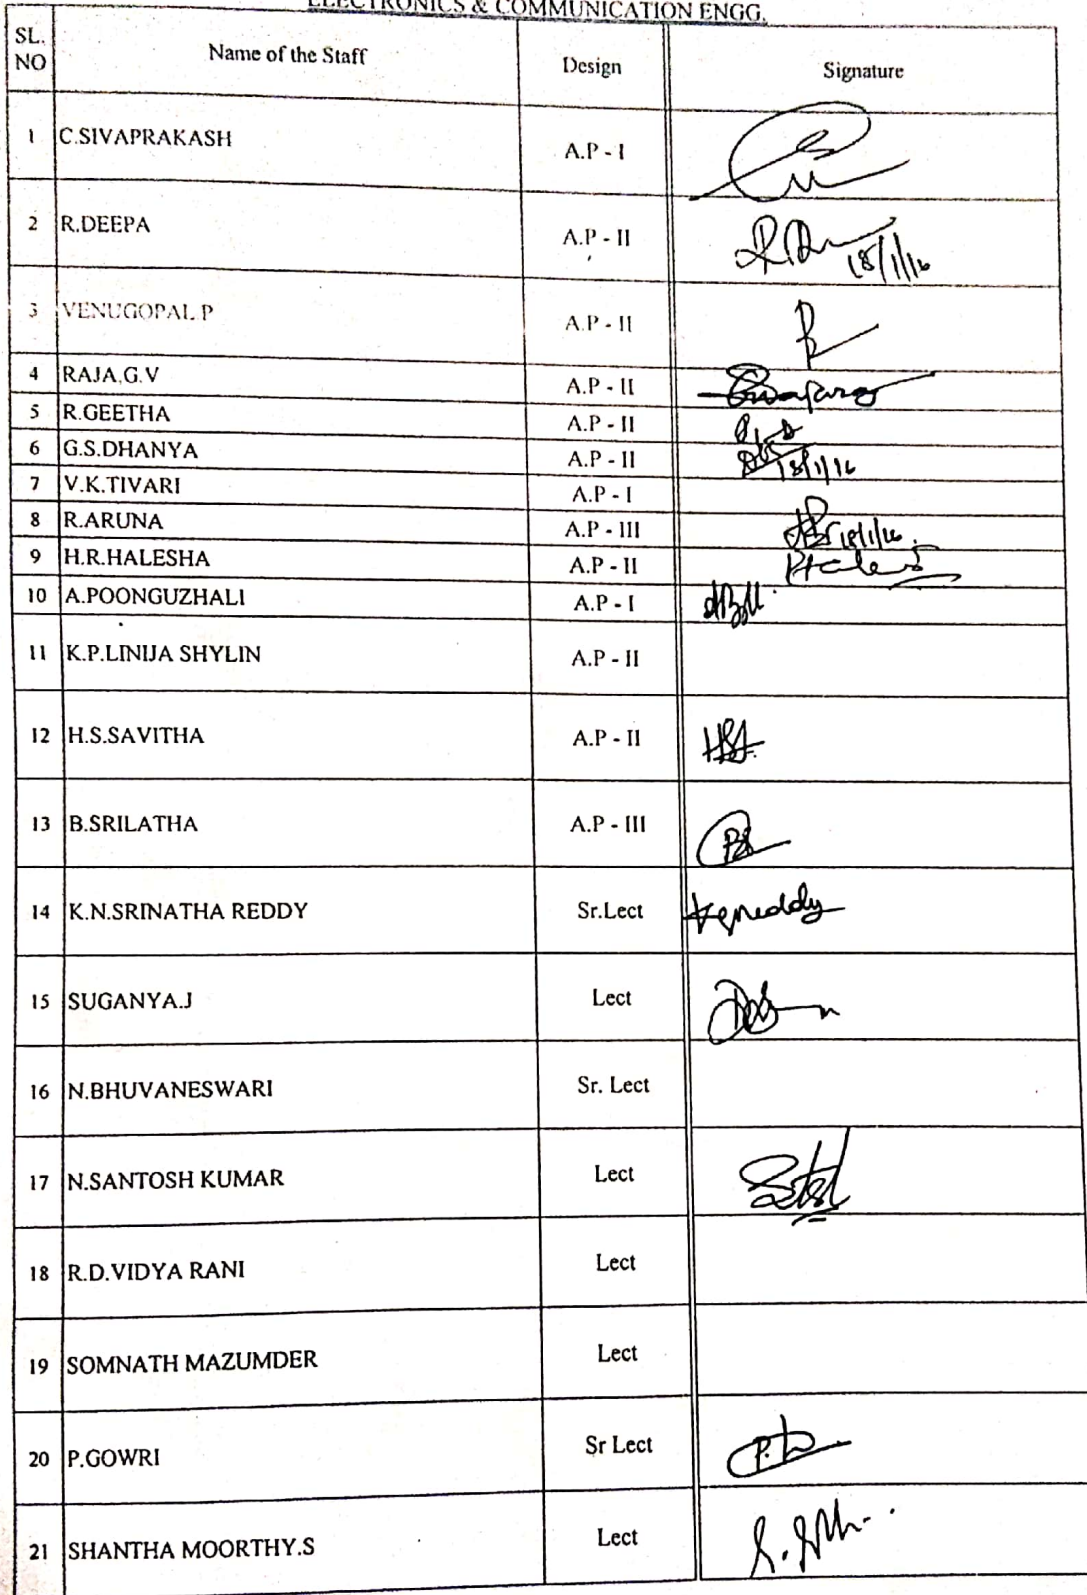 ELECTRONICS & COMMUNICATION ENGG.
SL. NO Name of the Staff Design Signature
1 C.SIVAPRAKASH A.P - I
2 R.DEEPA A.P - II 18/1/16
3 VENUGOPAL.P A.P - II
4 RAJA.G.V A.P - II
5 R.GEETHA A.P - II
6 G.S.DHANYA A.P - II 18/1/16
7 V.K.TIVARI A.P - I
8 R.ARUNA A.P - III 18/1/16
9 H.R.HALESHA A.P - II
10 A.POONGUZHALI A.P - I
11 K.P.LINIJA SHYLIN A.P - II
12 H.S.SAVITHA A.P - II
13 B.SRILATHA A.P - III
14 K.N.SRINATHA REDDY Sr.Lect
15 SUGANYA.J Lect
16 N.BHUVANESWARI Sr. Lect
17 N.SANTOSH KUMAR Lect
18 R.D.VIDYA RANI Lect
19 SOMNATH MAZUMDER Lect
20 P.GOWRI Sr Lect
21 SHANTHA MOORTHY.S Lect